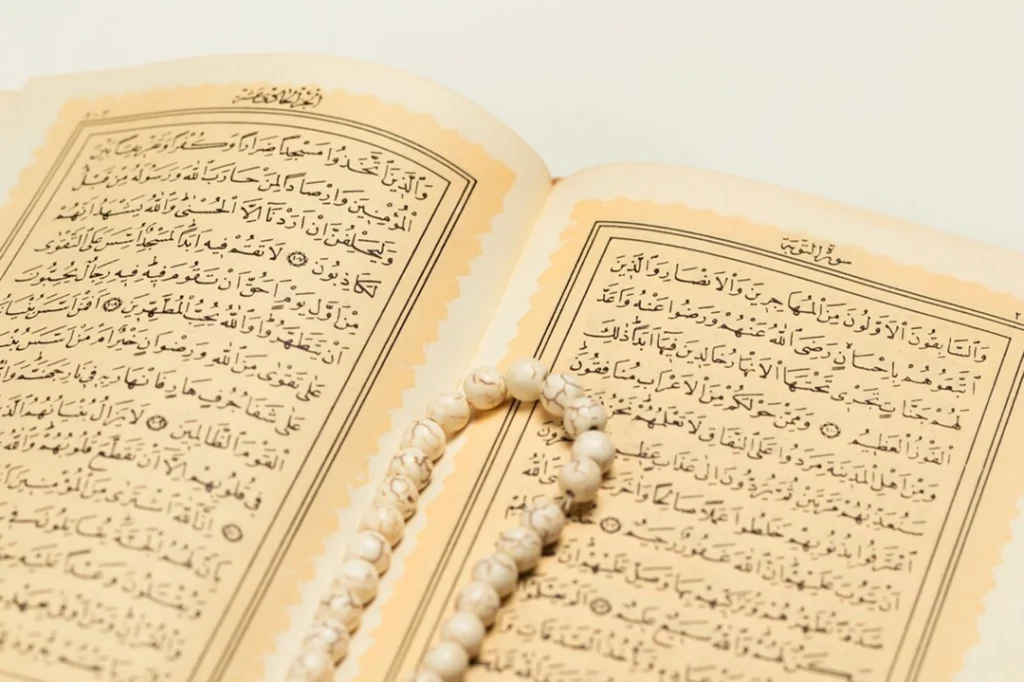 سورة التوبة
وَالسَّابِقُونَ الْاَوَّلُونَ مِنَ الْمُهَاجِرِينَ وَالْاَنْصَارِ وَالَّذِينَ
اتَّبَعُوهُمْ بِاِحْسَانٍ رَضِيَ اللّٰهُ عَنْهُمْ وَرَضُوا عَنْهُ وَاَعَدَّ
لَهُمْ جَنَّاتٍ تَجْرِي تَحْتَهَا الْاَنْهَارُ خَالِدِينَ فِيهَا اَبَدًا ذٰلِكَ
الْفَوْزُ الْعَظِيمُ وَمِمَّنْ حَوْلَكُمْ مِنَ الْاَعْرَابِ مُنَافِقُونَ
وَمِنْ اَهْلِ الْمَدِينَةِ مَرَدُوا عَلَى النِّفَاقِ لَا تَعْلَمُهُمْ نَحْنُ
سَنُعَذِّبُهُمْ مَرَّتَيْنِ ثُمَّ يُرَدُّونَ اِلٰى عَذَابٍ عَظِيمٍ
اعْتَرَفُوا بِذُنُوبِهِمْ خَلَطُوا عَمَلًا صَالِحًا وَاٰخَرَ اللّٰهُ
اَنْ يَتُوبَ عَلَيْهِمْ اِنَّ اللّٰهَ غَفُورٌ رَحِيمٌ
صَدَقَةً تُطَهِّرُهُمْ وَتُزَكِّيهِمْ بِهَا وَصَلِّ عَلَيْهِمْ اِنَّ
سَكَنٌ لَهُمْ وَاللّٰهُ سَمِيعٌ عَلِيمٌ
وَيَأْخُذُ الصَّدَقَاتِ وَاَنَّ اللّٰهَ
الجزء الحادي عشر
٢٠٣
وَالَّذِينَ اتَّخَذُوا مَسْجِدًا ضِرَارًا وَكُفْرًا وَتَفْرِيقًا بَيْنَ
الْمُؤْمِنِينَ وَاِرْصَادًا لِمَنْ حَارَبَ اللّٰهَ وَرَسُولَهُ مِنْ قَبْلُ
وَلَيَحْلِفُنَّ اِنْ اَرَدْنَا اِلَّا الْحُسْنٰى وَاللّٰهُ يَشْهَدُ اِنَّهُمْ
لَكَاذِبُونَ لَا تَقُمْ فِيهِ اَبَدًا لَمَسْجِدٌ اُسِّسَ عَلَى التَّقْوٰى
مِنْ اَوَّلِ يَوْمٍ اَحَقُّ اَنْ تَقُومَ فِيهِ فِيهِ رِجَالٌ يُحِبُّونَ
اَنْ يَتَطَهَّرُوا وَاللّٰهُ يُحِبُّ الْمُطَّهِّرِينَ اَفَمَنْ اَسَّسَ بُنْيَانَهُ
عَلٰى تَقْوٰى مِنَ اللّٰهِ وَرِضْوَانٍ خَيْرٌ اَمْ مَنْ اَسَّسَ
عَلٰى شَفَا جُرُفٍ هَارٍ فَانْهَارَ بِهِ فِي نَارِ جَهَنَّمَ
الْقَوْمَ الظَّالِمِينَ لَا يَزَالُ بُنْيَانُهُمُ
فِي قُلُوبِهِمْ اِلَّا اَنْ تَقَطَّعَ قُلُوبُهُمْ وَاللّٰهُ
اِنَّ اللّٰهَ اشْتَرٰى مِنَ الْمُؤْمِنِينَ
بِاَنَّ لَهُمُ الْجَنَّةَ يُقَاتِلُونَ فِي
وَيُقْتَلُونَ وَعْدًا عَلَيْهِ
وَالْقُرْاٰنِ وَمَنْ اَوْفٰى بِعَهْدِهِ